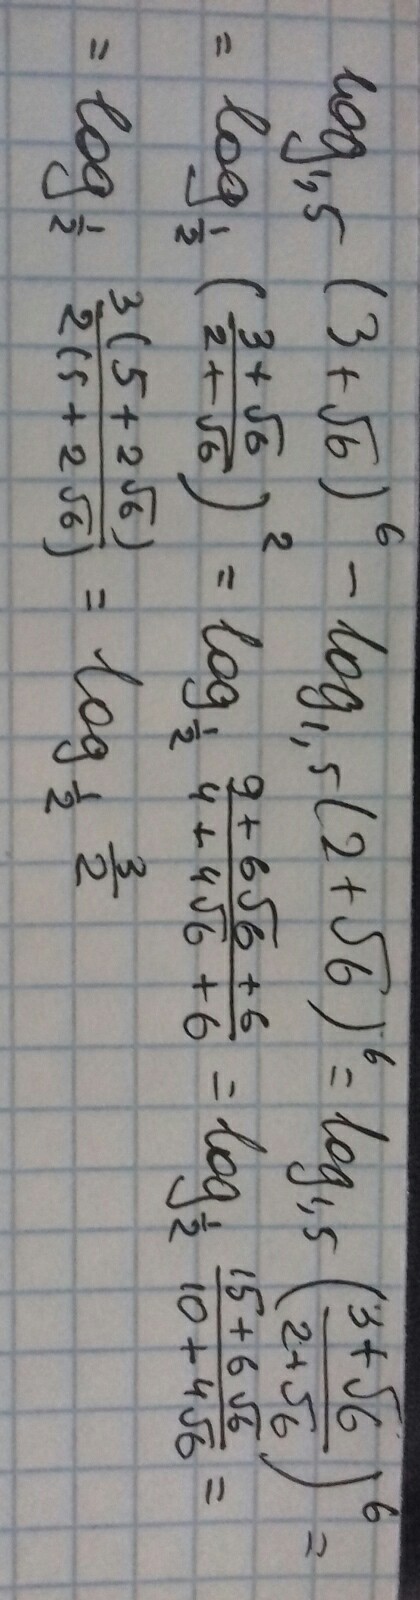 log₁,₅ (3 + √6)⁶ − log₁,₅ (2 + √6)⁶ = log₁,₅ ((3 + √6)/(2 + √6))⁶ =
= log_{1/2} ((3 + √6)/(2 + √6))² = log_{1/2} (9 + 6√6 + 6)/(4 + 4√6 + 6) = log_{1/2} (15 + 6√6)/(10 + 4√6) =
= log_{1/2} 3(5 + 2√6)/2(5 + 2√6) = log_{1/2} 3/2